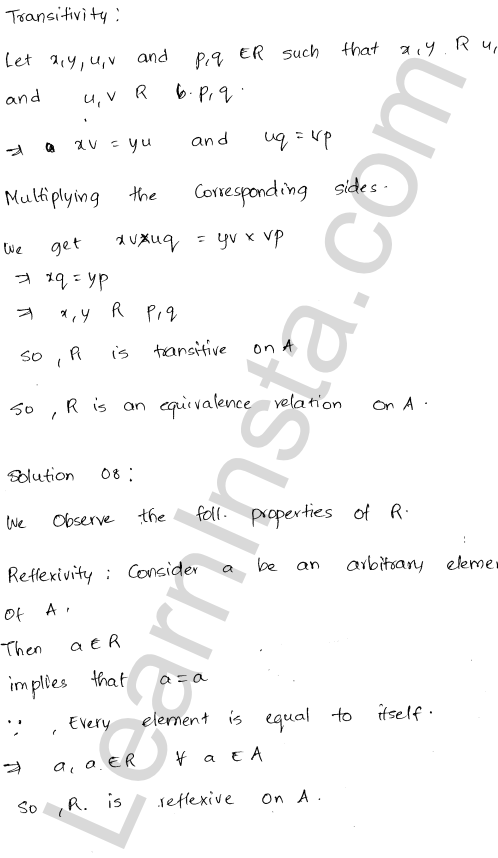 Transitivity :
Let x,y,u,v and p,q ∈R such that x,y R u,
and u,v R p,q.
⇒ xv = yu and uq = vp
Multiplying the Corresponding sides.
We get xv×uq = yv × vp
⇒ xq = yp
⇒ x,y R p,q
So, R is transitive on A
So, R is an equivalence relation on A.
Solution 08:
We Observe the foll. properties of R.
Reflexivity : Consider a be an arbitrary eleme
Of A.
Then a ∈ R
implies that a = a
∵ , Every element is equal to itself.
⇒ a, a ∈R ∀ a ∈ A
So, R. is reflexive on A.
LearnInsta.com